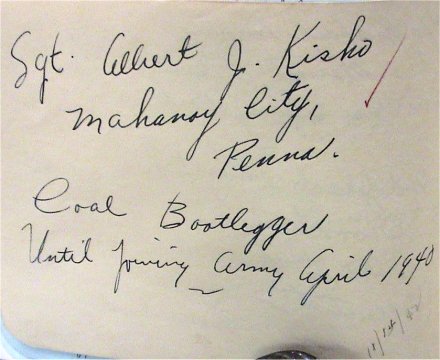 Sgt. Albert J. Kisko
Mahanoy City,
Penna.
Coal Bootlegger
Until joining Army April 1940
11/14/42